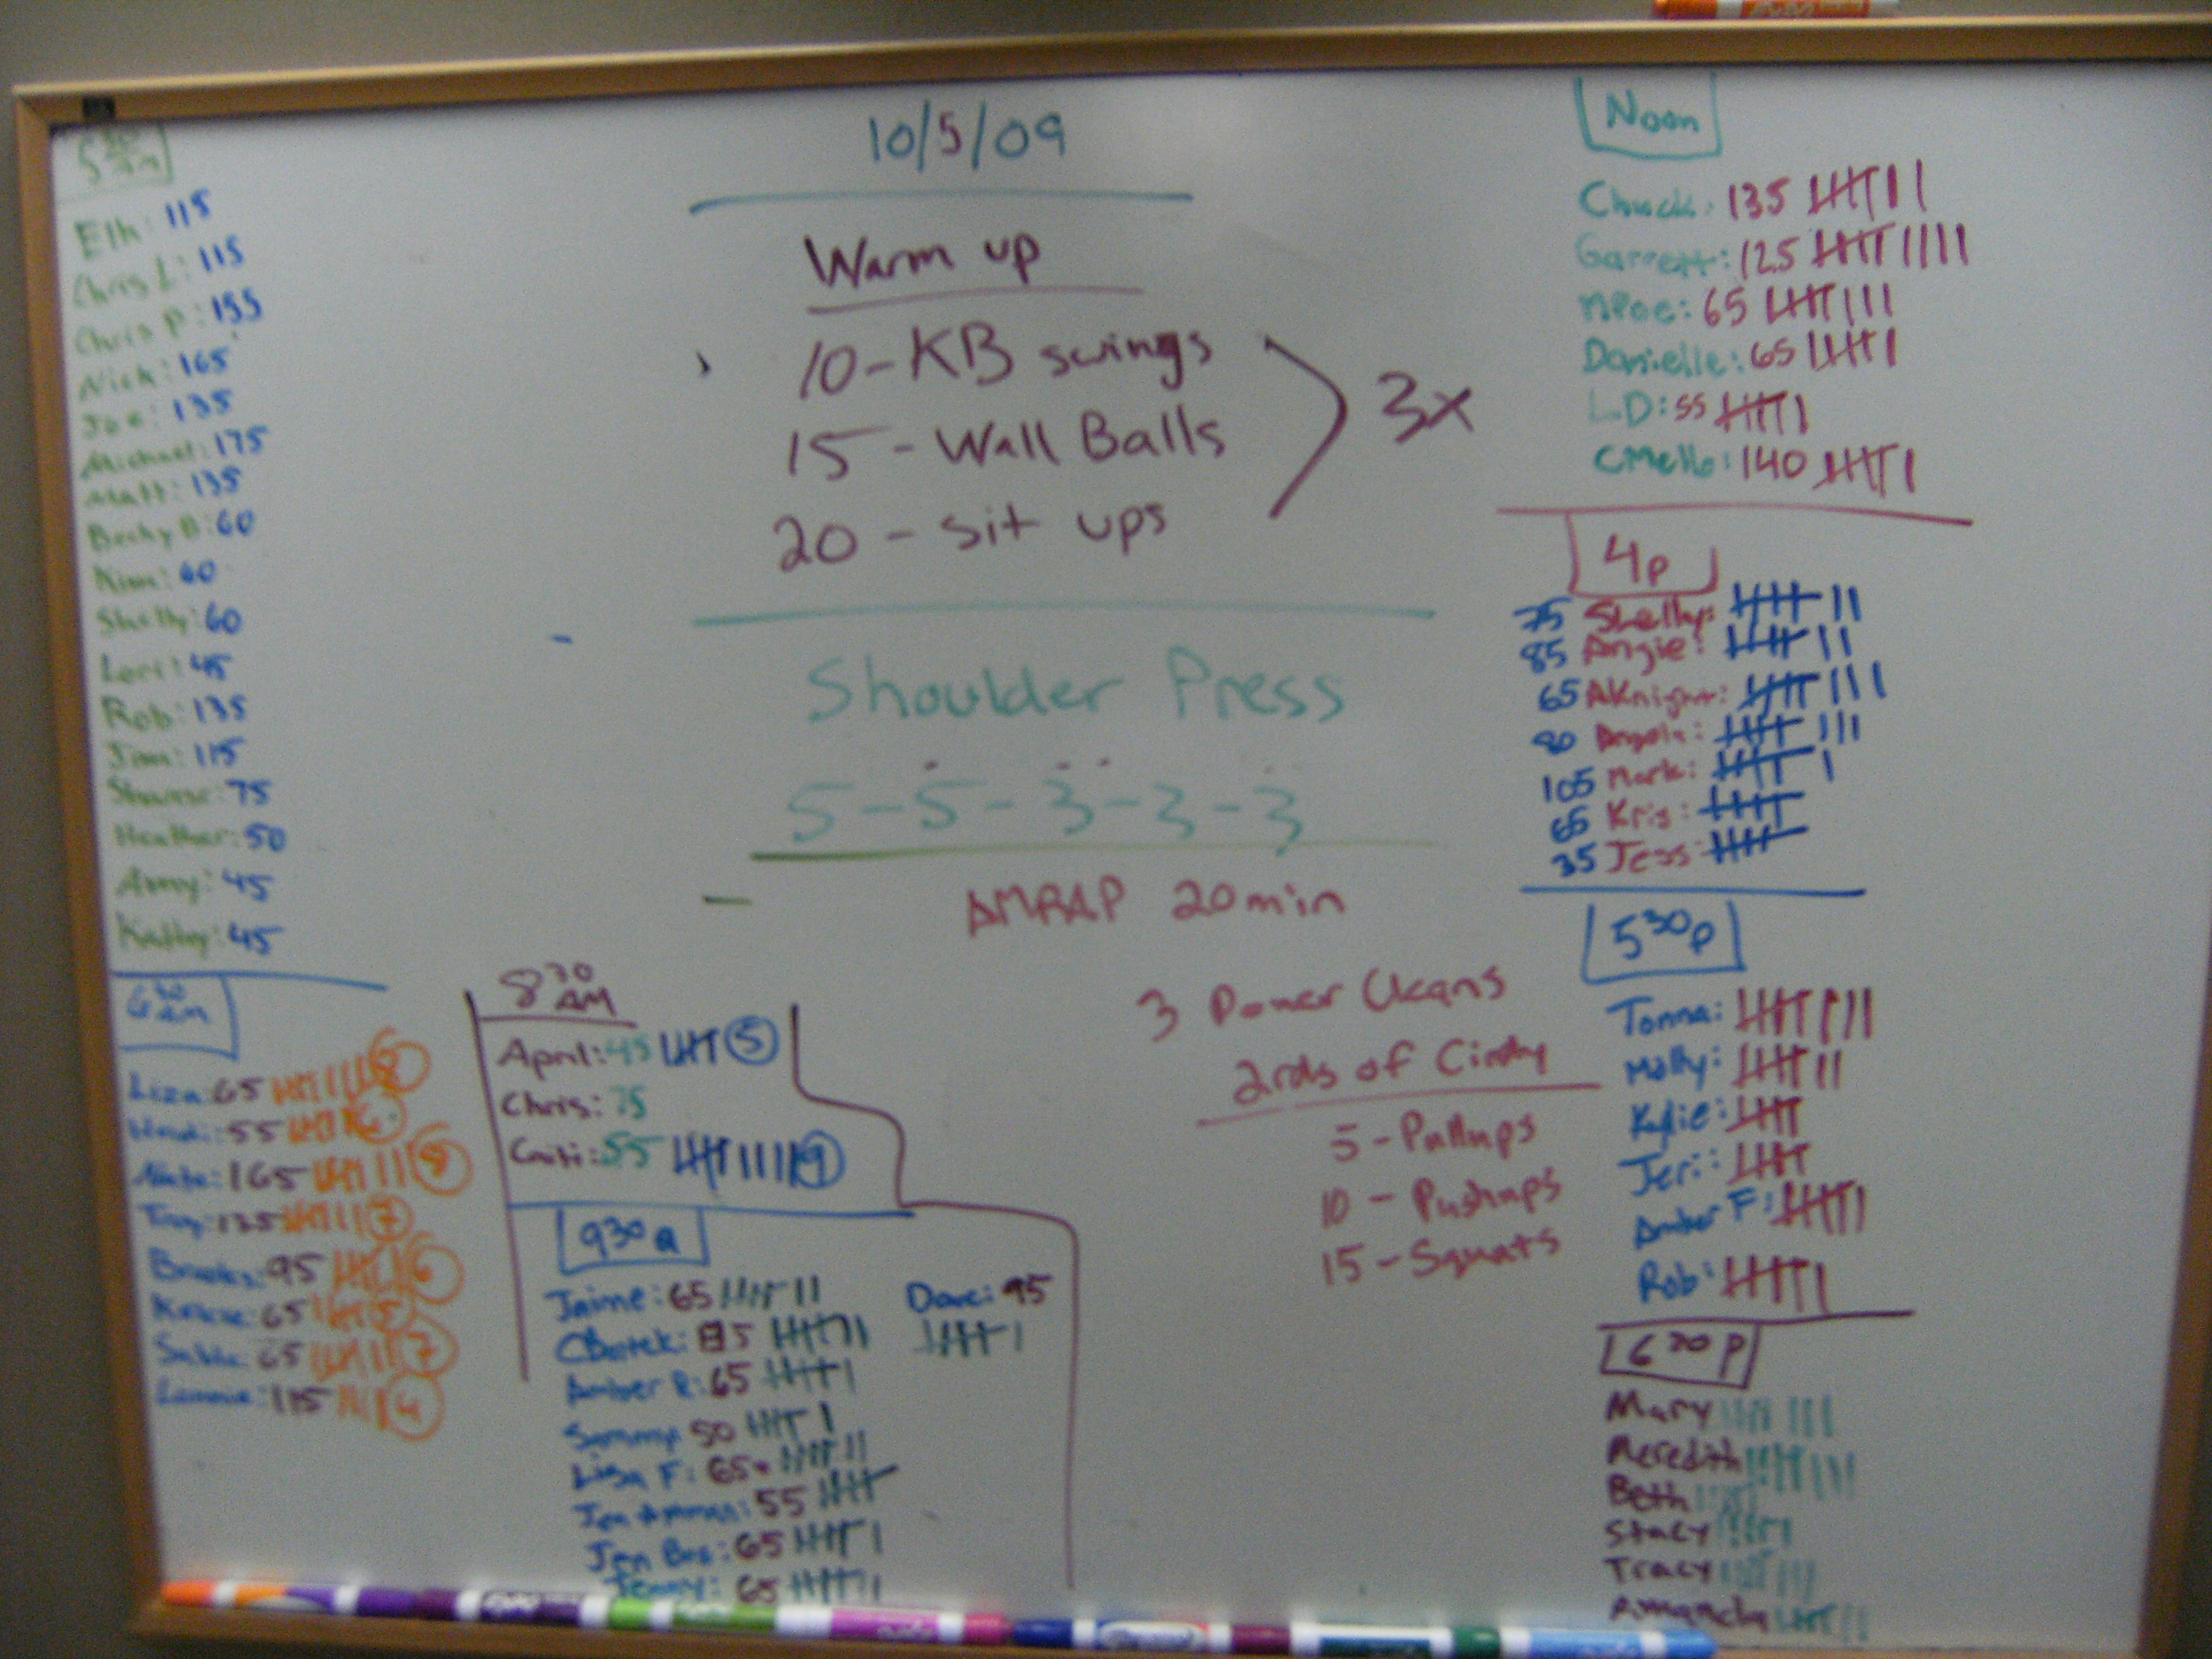 10/5/09
Warm up
10-KB swings
15-Wall Balls
20-sit ups
3x
Shoulder Press
5-5-3-3-3
AMRAP 20min
3 Power Cleans
2rds of Cindy
5-Pullups
10-Pushups
15-Squats
5 30 Am
Eli: 115
Chris L: 115
Chris P: 155
Nick: 165
Joe: 135
Michael: 175
Matt: 135
Becky B: 60
Kim: 60
Shelly: 60
Lori: 45
Rob: 135
Jim: 115
75
Heather: 50
Amy: 45
Kathy: 45
6 30 Am
Liza: 65
Heidi: 55
Nate: 165
Troy: 135 7
Brooks: 95 6
65 5
65 7
115 4
8 30 AM
April: 45 5
Chris: 75
Caiti: 55 9
9 30 a
Jaime: 65
Amber R: 65
Sammy: 50
Lisa F: 65
Jen 55
Jen 65
Jenny: 65
Dave: 95
Noon
Chuck: 135
Garrett: 125
MPoe: 65
Danielle: 65
LD: 55
CMello: 140
4p
75 Shelly:
85 Angie:
65 AKnight:
80 Angela:
105 Mark:
65 Kris:
35 Jess:
5 30 p
Tonna:
Molly:
Kylie:
Jeri:
Amber F:
Rob:
6 30 p
Mary
Meredith
Beth
Stacy
Tracy
Amanda